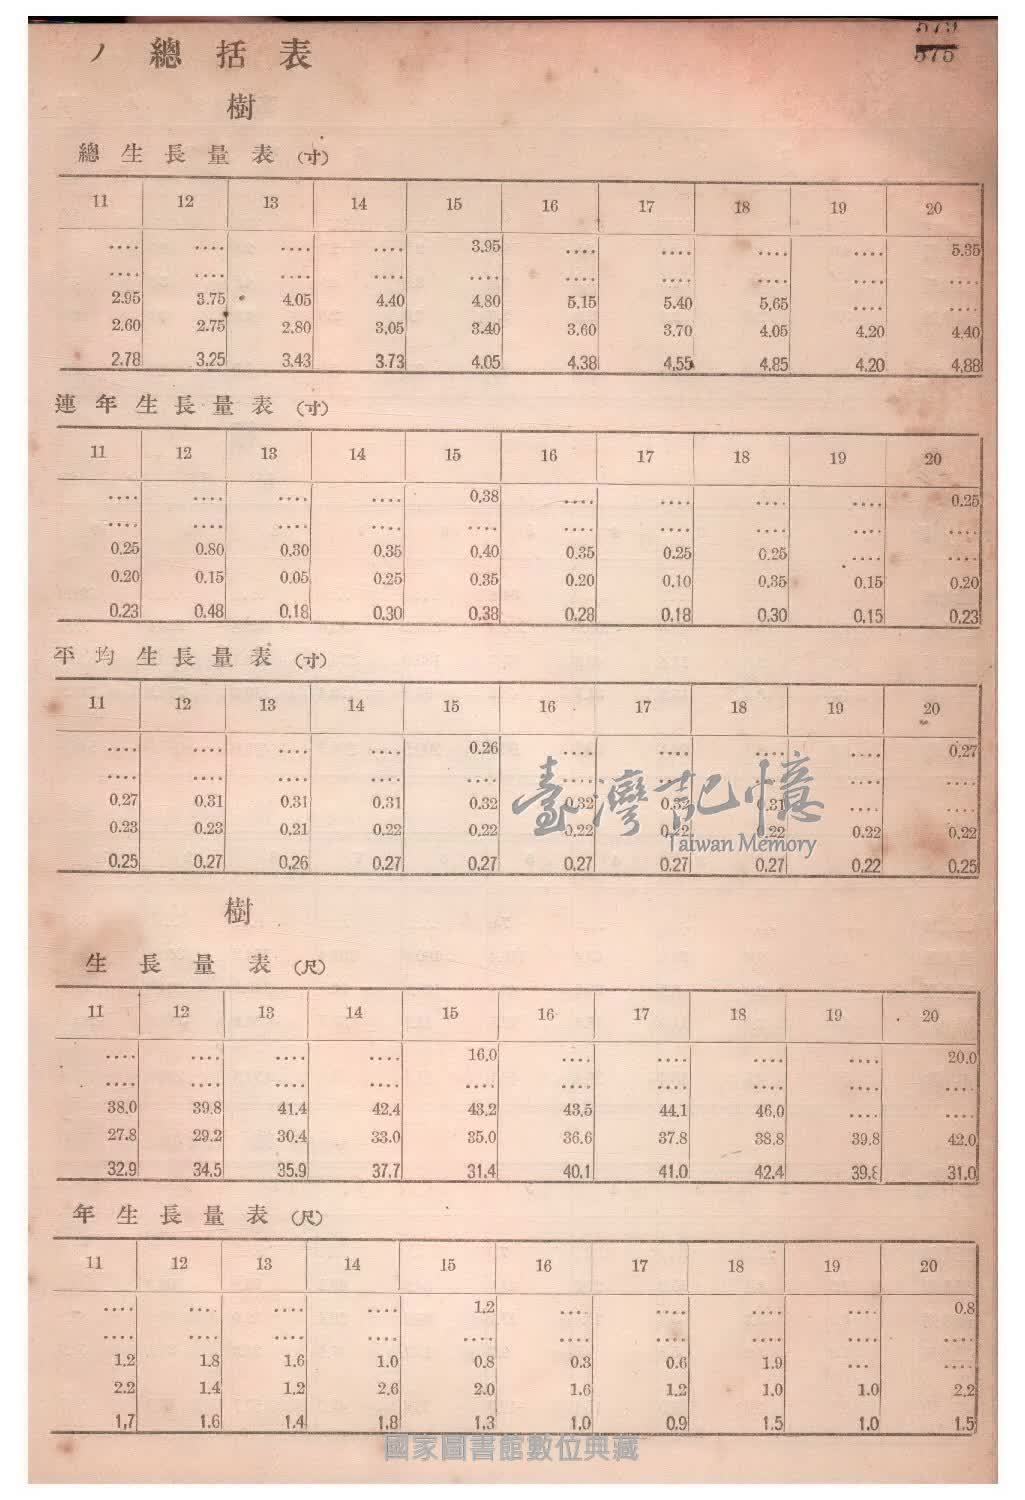 ノ 總 括 表
579
575
樹
總 生 長 量 表 (寸)
11 12 13 14 15 16 17 18 19 20
.... .... .... .... 3.95 .... .... .... .... 5.35
.... .... .... .... .... .... .... .... .... ....
2.95 3.75 4.05 4.40 4.80 5.15 5.40 5.65 .... ....
2.60 2.75 2.80 3.05 3.40 3.60 3.70 4.05 4.20 4.40
2.78 3.25 3.43 3.73 4.05 4.38 4.55 4.85 4.20 4.88
連 年 生 長 量 表 (寸)
11 12 13 14 15 16 17 18 19 20
.... .... .... .... 0.38 .... .... .... .... 0.25
.... .... .... .... .... .... .... .... .... ....
0.25 0.80 0.30 0.35 0.40 0.35 0.25 0.25 .... ....
0.20 0.15 0.05 0.25 0.35 0.20 0.10 0.35 0.15 0.20
0.23 0.48 0.18 0.30 0.38 0.28 0.18 0.30 0.15 0.23
平 均 生 長 量 表 (寸)
11 12 13 14 15 16 17 18 19 20
.... .... .... .... 0.26 .... .... .... .... 0.27
.... .... .... .... .... .... .... .... .... ....
0.27 0.31 0.31 0.31 0.32 0.32 0.32 0.31 .... ....
0.23 0.23 0.21 0.22 0.22 0.22 0.22 0.22 0.22 0.22
0.25 0.27 0.26 0.27 0.27 0.27 0.27 0.27 0.22 0.25
臺灣記憶
Taiwan Memory
樹
生 長 量 表 (尺)
11 12 13 14 15 16 17 18 19 20
.... .... .... .... 16.0 .... .... .... .... 20.0
.... .... .... .... .... .... .... .... .... ....
38.0 39.8 41.4 42.4 43.2 43.5 44.1 46.0 .... ....
27.8 29.2 30.4 33.0 35.0 36.6 37.8 38.8 39.8 42.0
32.9 34.5 35.9 37.7 31.4 40.1 41.0 42.4 39.8 31.0
年 生 長 量 表 (尺)
11 12 13 14 15 16 17 18 19 20
.... .... .... .... 1.2 .... .... .... .... 0.8
.... .... .... .... .... .... .... .... .... ....
1.2 1.8 1.6 1.0 0.8 0.3 0.6 1.9 ... ....
2.2 1.4 1.2 2.6 2.0 1.6 1.2 1.0 1.0 2.2
1.7 1.6 1.4 1.8 1.3 1.0 0.9 1.5 1.0 1.5
國家圖書館數位典藏